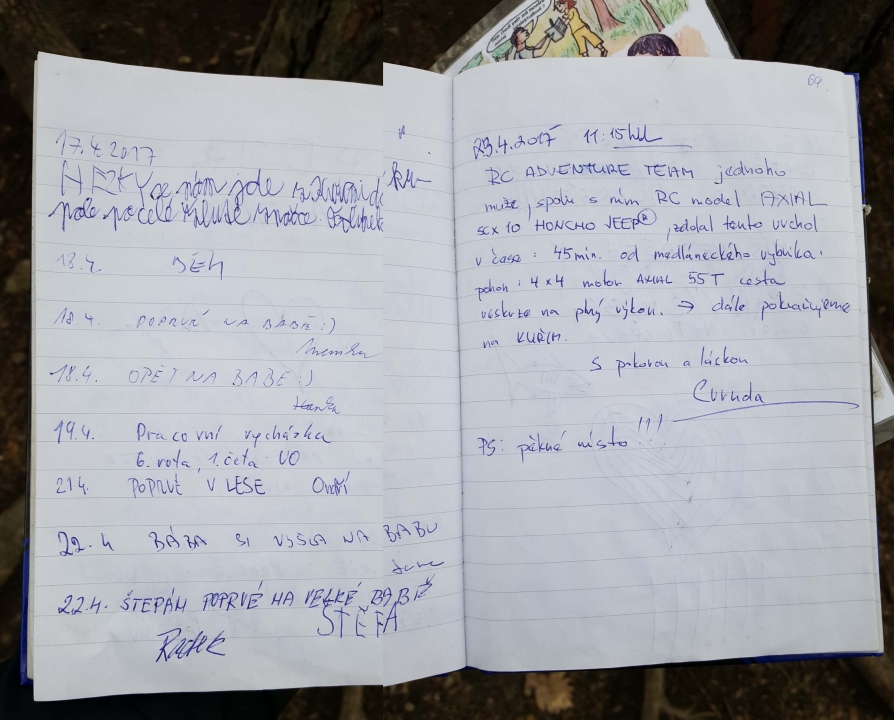 17.4.2017
HEZKY se nám jde
18.4. DĚH
18.4. POPRVÉ NA BABĚ :)
18.4. OPĚT NA BABĚ :)
Hanka
19.4. Pracovní vycházka
6. rota, 1. četa VO
21.4. POPRVÉ V LESE Ondří
22.4 BÁBA SI VYŠLA NA BABU
22.4. ŠTEPÁN POPRVÉ NA VELKÉ BABĚ
ŠTĚPA
Radek
69.
23.4.2017 11:15hod
RC ADVENTURE TEAM jednoho
muže, spolu s ním RC model AXIAL
SCX 10 HONCHO JEEP®, zdolal tento vrchol
v čase : 45min. od medláneckého vybvíka.
pohon : 4x4 motor AXIAL 55T cesta
veskrze na plný výkon. → dále pokračujeme
na KUŘIM.
S pokorou a láskou
Curuda
PS: pěkné místo !!!